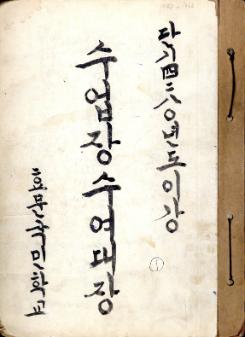 단기四二八0년도이상
수업장수여대장
효문국민학교